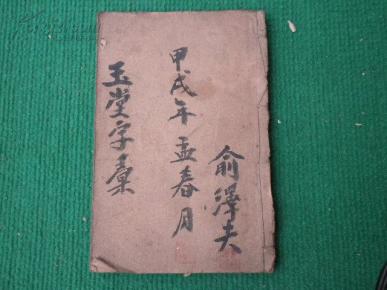 俞澤夫
甲戌年孟春月
玉堂字彙